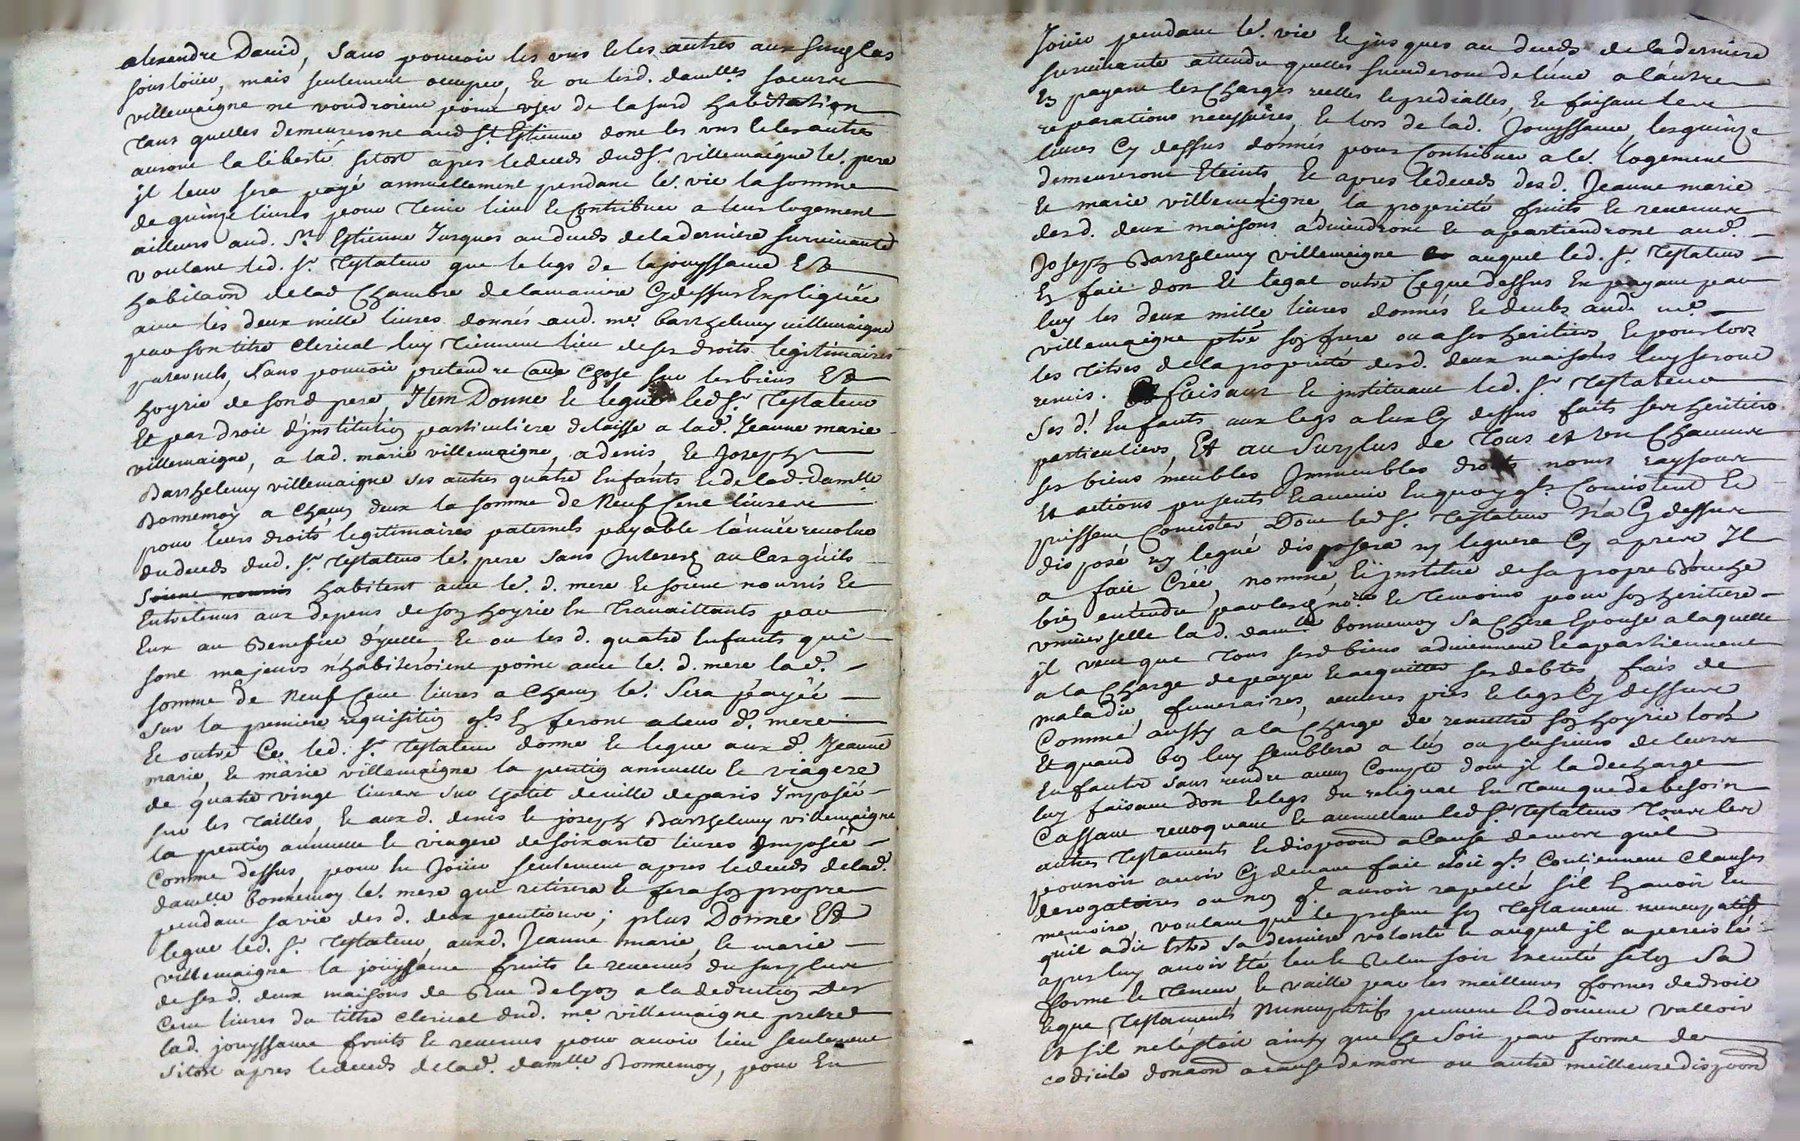 alexandre David, sans pouvoir les uns et les autres aux surplus
soustoüer, mais seulement occuper, Et ou lesd. damlles soeurs
villemaigne ne voudroient point user de la susd habitation
tans quelles demeureront aud St. Estienne dont les uns et les autres
auront la liberté sitost apres le deceds dud Sr. villemaigne lr. pere
jl leur sera payé annuellement pendant lr. vie la somme
de quinze livres pour tenir lieu et contribuer a leur logement
ailleurs aud. St Estienne Jusques au deceds de la derniere survivante
voulant led. Sr. Testateur que le legs de la jouyssance Et
habitaond delad Chambre de la maniere Cydessus Expliquée
avec les deux mille livres donnés aud. me. barthelemy villemaigne
pour son titre clerical luy tiennent lieu de ses droits legitimaires
paternels, sans pouvoir pretendre autre chose sur les biens Et
hoyrie de sond pere Item Donne et legue led Sr. Testateur
Et par droit d'jnstitution particuliere delaisse a lad. Jeanne marie
villemaigne, a lad. marie villemaigne, a denis, Et Joseph
Barthelemy villemaigne ses autres quatre Enfants Et de lad. damlle
Bonnemoy a chacun deux la somme de Neuf Cent livres
pour leurs droits legitimaires paternels payable lannée revolue
du deceds dud. Sr. Testateur lr. pere sans Interest au Cas quils
soient nourris habitent avec lr. d. mere Et soient nourris Et
Entretenus aux depens de son hoyrie En Travaillants pour
Eux au Benefice d'ycelle Et ou les d. quatre Enfants qui
sont majeurs n'habiteroient point avec lr. d. mere lad.
somme de Neuf Cent livres a Chacun lr. Sera payée
sur la premiere requisition qls En feront a leur d. mere
Et outre Ce led. Sr. Testateur donne Et legue aux d. Jeanne
marie, Et marie villemaigne la pention annuelle Et viagere
de quatre vingt livres sur lhotel de ville de paris Imposée
sur les tailles, Et aux d. denis Et joseph Barthelemy villemaigne
la pention annuelle Et viagere de soixante livres Imposée
Comme dessus, pour En Joüir seulement apres le deceds delad.
damlle bonnemoy lr. mere qui retirera Et fera son propre
pendant sa vie des d. deux pentions; plus Donne Et
legue led. Sr. Testateur, aux d. Jeanne marie, Et marie
villemaigne la joüyssance fruits Et revenus du surplus
de ses d. deux maisons de Rue de lyon a la deduction des
Cent livres du tittre clerical dud. me. villemaigne pretre
lad. jouyssance fruits Et revenus pour avoir lieu seulement
sitost apres le deceds delad. damlle. Bonnemoy, pour En
Joüir pendant lr. vie Et jusques au deceds de la derniere
survivante attendu quelles succederont de l'une a l'autre
En payant les charges reelles Et predialles, Et faisant les
reparations necessaires, Et lors de lad. Jouyssance, les quinze
livres Cy dessus donnés pour Contribuer a lr. logement
demeureront Eteints Et apres le deceds desd. Jeanne marie
Et marie villemaigne la proprieté fruits Et revenus
desd. deux maisons adviendront Et apartiendront aud.
Joseph Barthelemy villemaigne auquel led. Sr. Testateur
En fait don Et legat outre Ceque dessus En payant par
luy les deux mille livres donnés Et deubs aud. me.
villemaigne ptre son frere ou a ses heritiers Et pour lors
les titres de la proprieté desd. deux maisons luy seront
remis. faisant Et jnstituant led. Sr. Testateur
Ses d. Enfants aux legs a Eux Cy dessus faits ses heritiers
particuliers, Et au Surplus de Tous et un Chacuns
ses biens meubles Immeubles droits noms raysons
Et actions presents Et avenir En quoy qls. Consistent Et
puissent Consister Dont led Sr. Testateur N'a Cy dessus
disposé ny legué disposera ny leguera Cy apres Il
a fait Créé, nommé, Et jnstitué de sa propre Bouche
bien entendu par les no.re Et temoins pour son heritiere
universelle lad. damlle bonnemoy Sa Chere Epouse a laquelle
jl veut que tous sesd biens adviennent Et apartiennent
a la Charge de payer Et acquitter ses debtes, frais de
maladie, funeraires, oeuvres pies Et legs Cy dessus
Comme aussy a la Charge de remettre son hoyrie lors
Et quand bon luy semblera a lun ou plusieurs de leurs
Enfants sans rendre aucun Compte dont jl la decharge
luy faisant don Et legs du reliquat En tant que de besoin
Cassant revoquant Et annullant led Sr. Testateur Tous les
autres Testaments Et disposond a Cause de mort quil
pourroit avoir Cy devant fait soit qls Contiennent Clauses
derogatoires ou non ql. auroit rapellé sil Lhavoit En
memoire, voulant que le present son Testament nuncupatif
qu'il a dit Estre sa derniere volonté Et auquel jl a persisté
apres luy avoir Eté leu Et Releu soit Executé selon Sa
forme Et Teneur Et vaille par les meilleures formes de droit
que Testaments Nuncupatifs peuvent Et doivent valloir
Et sil ne l'estoit ainsy que Ce Soit par forme de
codicile donaond a cause de mort ou autre meilleure disposond